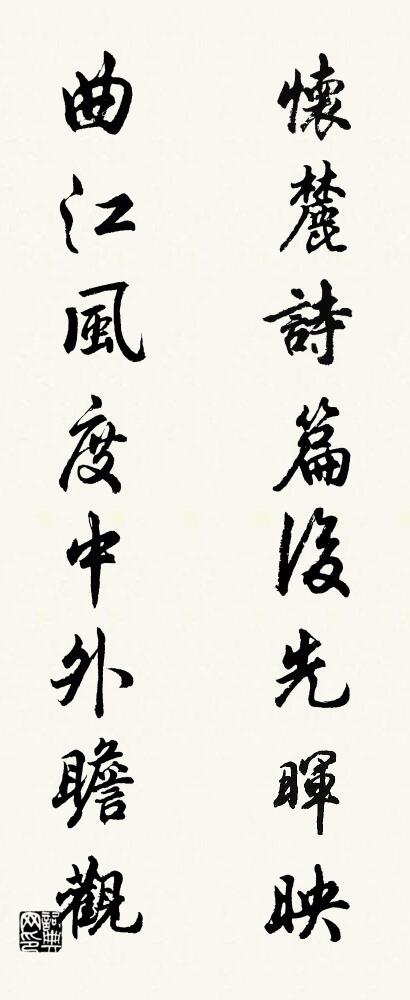 懷麓詩篇後先暉映
曲江風度中外瞻觀
詞典網印